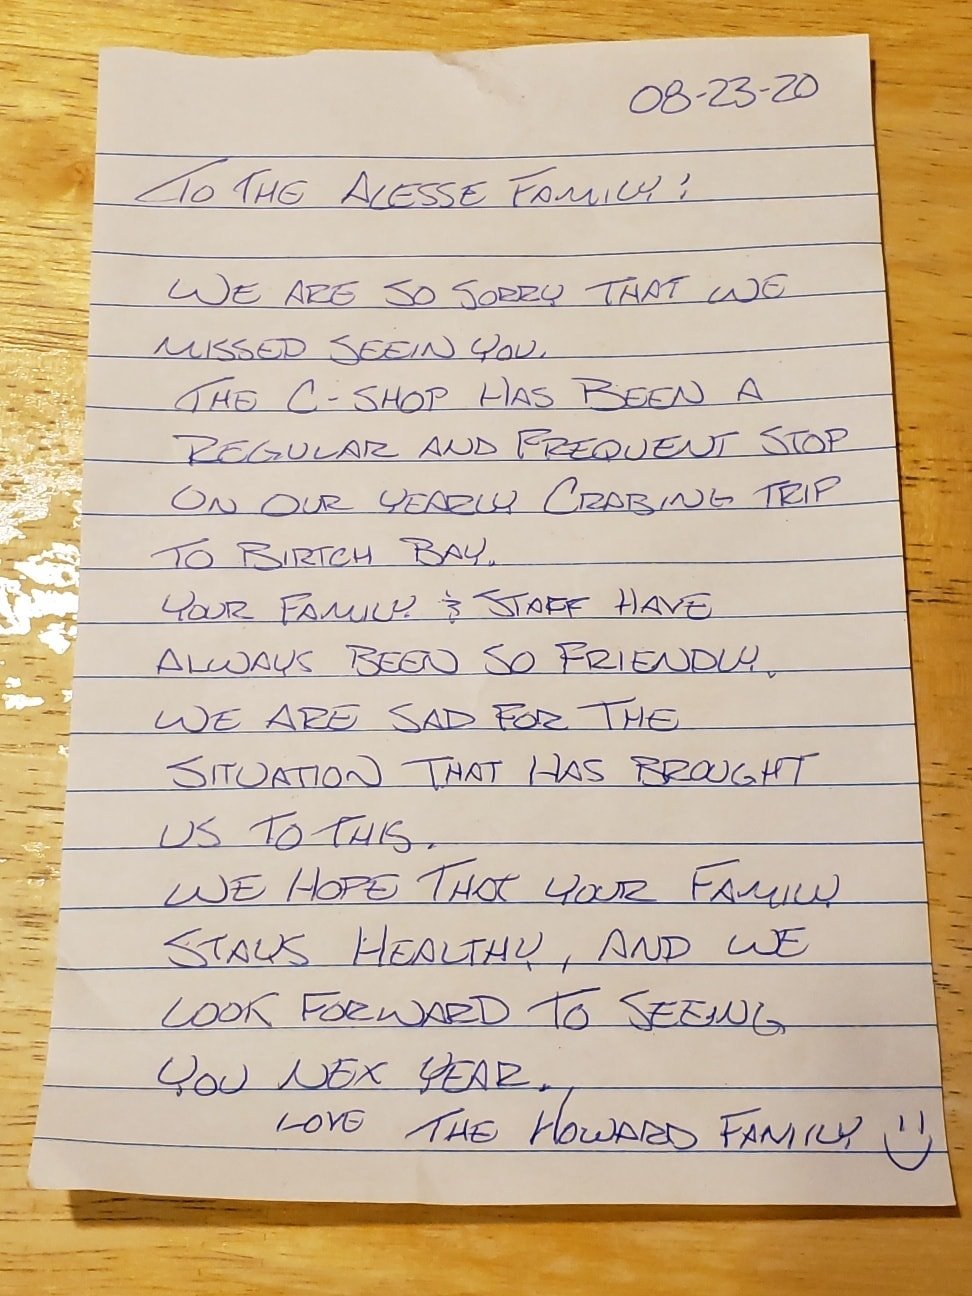 08-23-20
TO THE ALESSE FAMILY:
WE ARE SO SORRY THAT WE
MISSED SEEIN YOU.
THE C-SHOP HAS BEEN A
REGULAR AND FREQUENT STOP
ON OUR YEARLY CRABING TRIP
TO BIRTCH BAY.
YOUR FAMILY & STAFF HAVE
ALWAYS BEEN SO FRIENDLY.
WE ARE SAD FOR THE
SITUATION THAT HAS BROUGHT
US TO THIS.
WE HOPE THAT YOUR FAMILY
STAYS HEALTHY, AND WE
LOOK FORWARD TO SEEING
YOU NEX YEAR.
LOVE THE HOWARD FAMILY